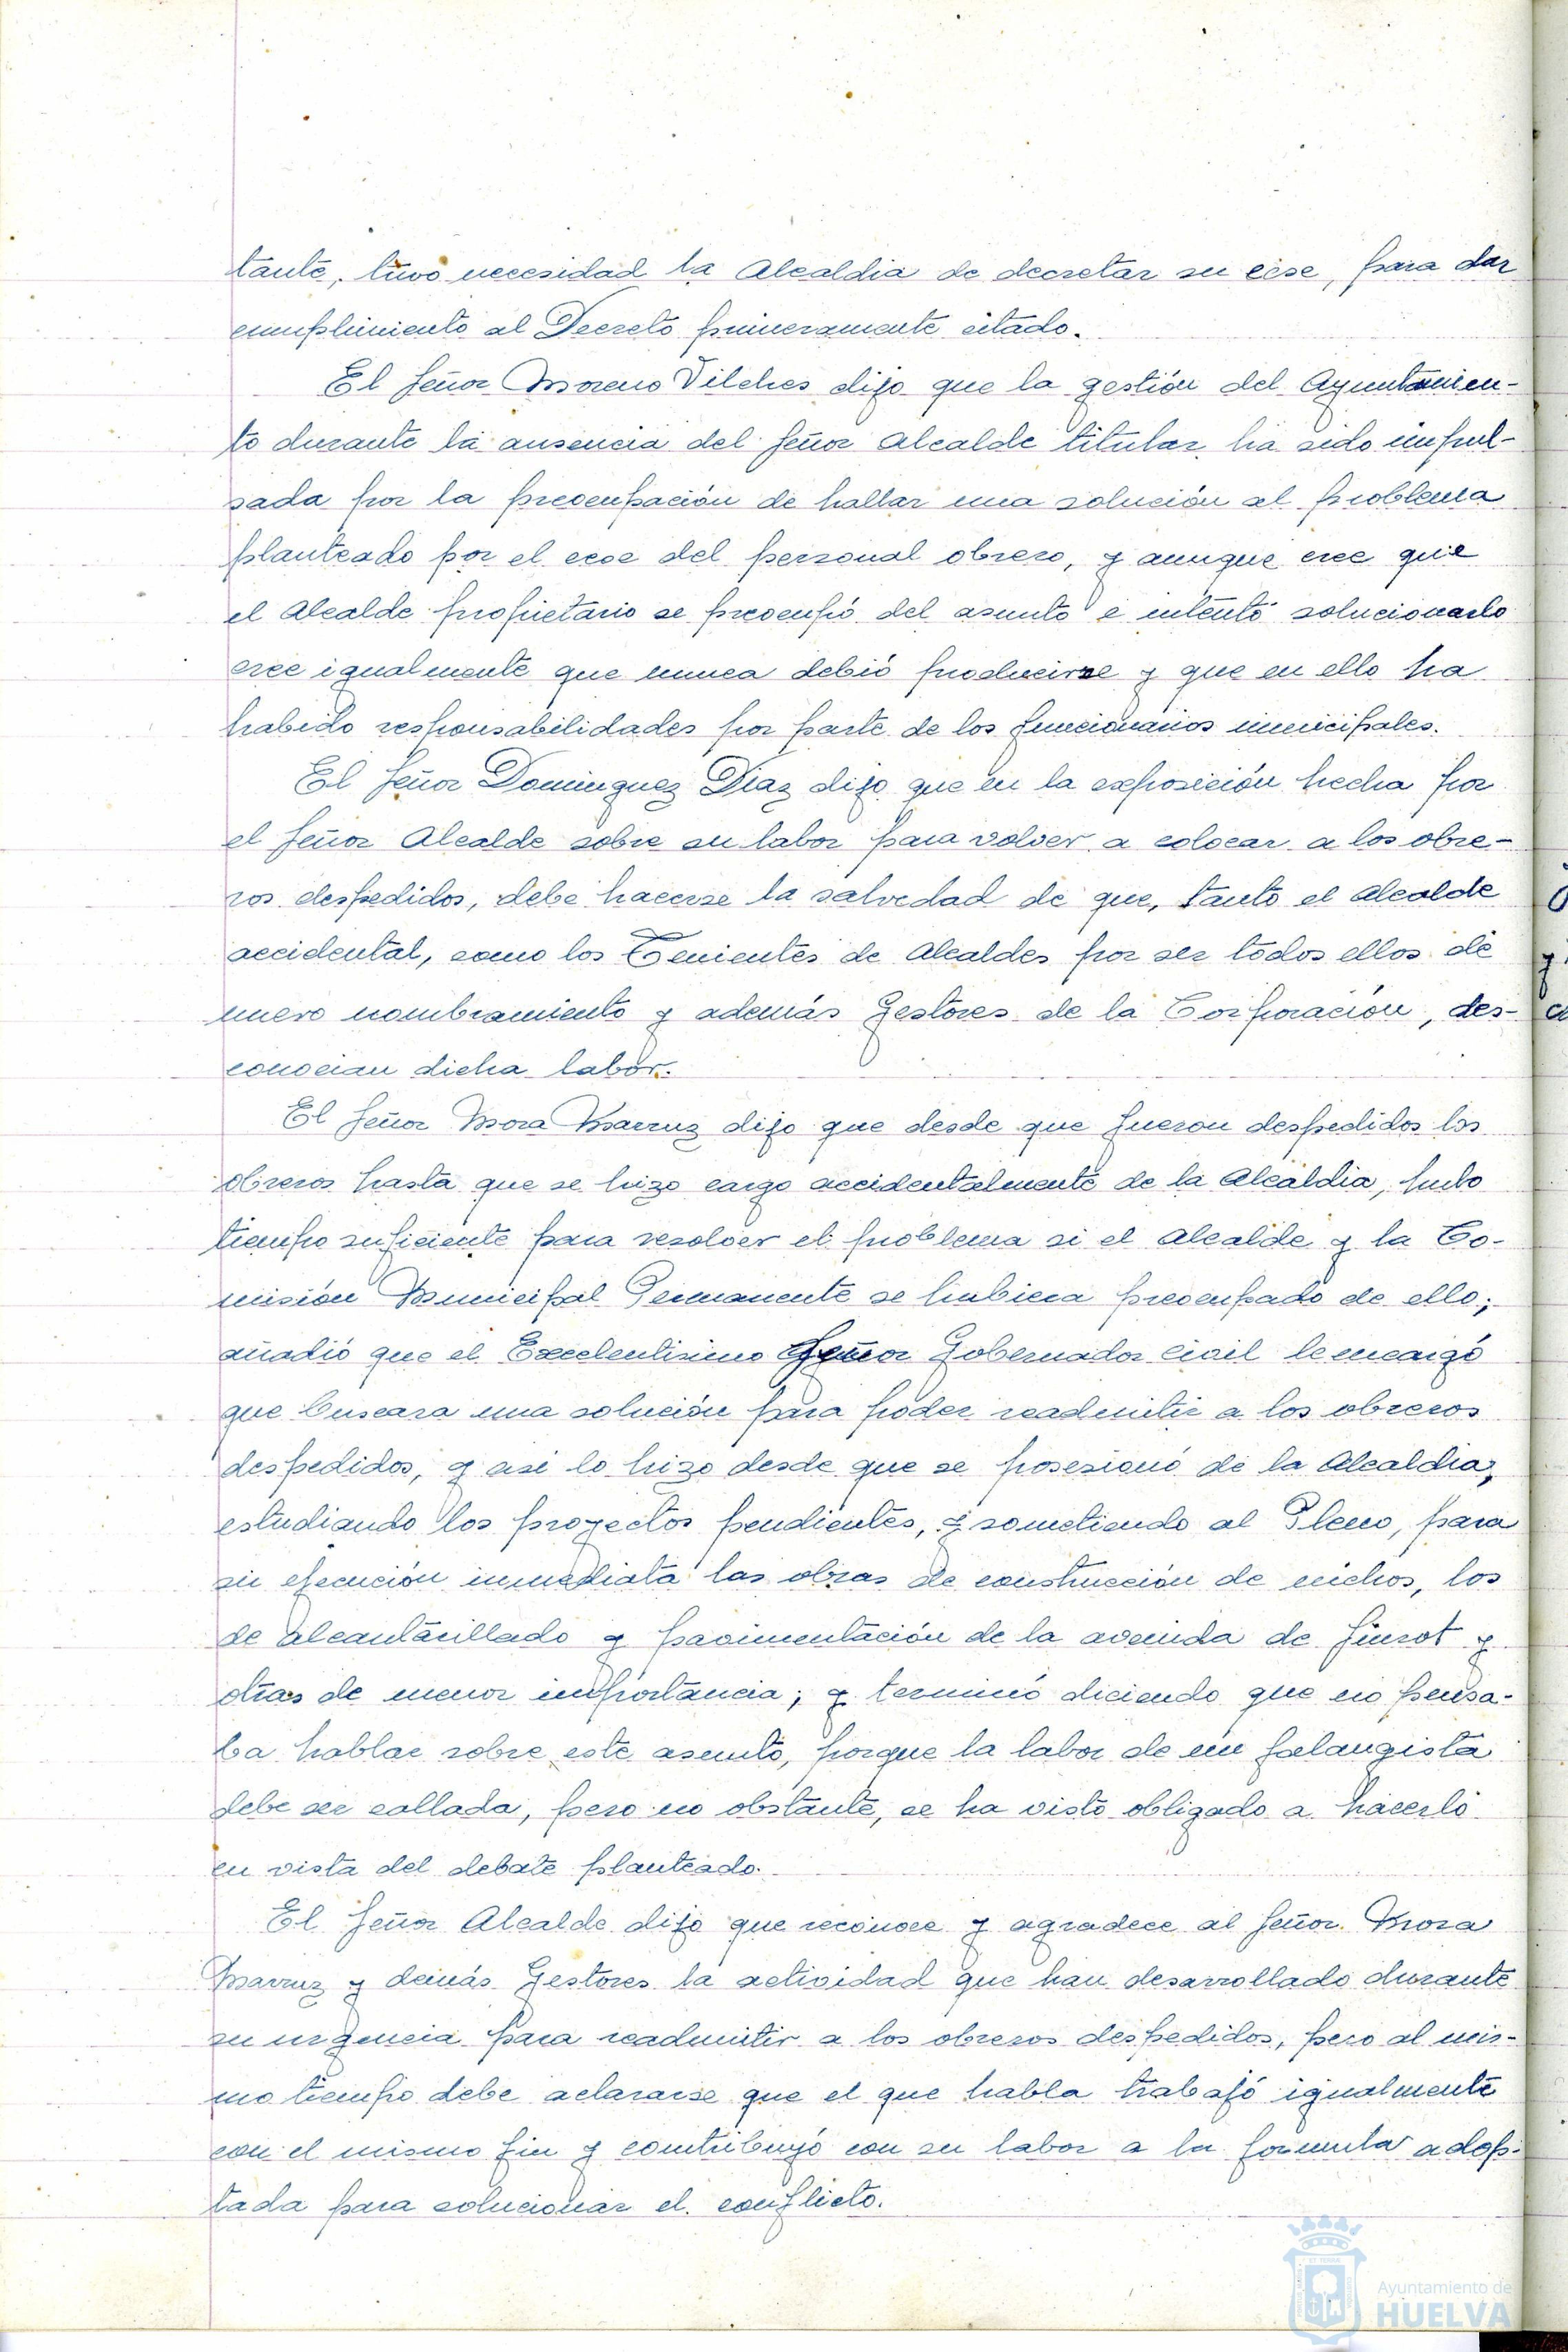 tante, tuvo necesidad la Alcaldia de decretar su cese, para dar
cumplimiento al Decreto primeramente citado.
El Señor Moreno Vilches dijo que la gestión del Ayuntamien-
to durante la ausencia del Señor Alcalde titular ha sido impul-
sada por la preocupación de hallar una solución al problema
planteado por el cese del personal obrero, y aunque cree que
el Alcalde propietario se preocupó del asunto e intentó solucionarlo
cree igualmente que nunca debió producirse y que en ello ha
habido responsabilidades por parte de los funcionarios municipales.
El Señor Dominguez Diaz dijo que en la exposición hecha por
el Señor Alcalde sobre su labor para volver a colocar a los obre-
ros despedidos, debe hacerse la salvedad de que, tanto el Alcalde
accidental, como los Tenientes de Alcaldes por ser todos ellos de
nuevo nombramiento y además Gestores de la Corporación, des-
conocian dicha labor.
El Señor Mora Marruz dijo que desde que fueron despedidos los
obreros hasta que se hizo cargo accidentalmente de la Alcaldia, hubo
tiempo suficiente para resolver el problema si el Alcalde y la Co-
misión Municipal Permanente se hubiera preocupado de ello;
añadió que el Excelentisimo Señor Gobernador civil le encargó
que buscara una solución para poder readmitir a los obreros
despedidos, y asi lo hizo desde que se posesionó de la Alcaldia,
estudiando los proyectos pendientes, y sometiendo al Pleno, para
su ejecución inmediata las obras de construcción de nichos, los
de alcantarillado y pavimentación de la avenida de
otras de menor importancia; y terminó diciendo que no pensa-
ba hablar sobre este asunto, porque la labor de un falangista
debe ser callada, pero no obstante, se ha visto obligado a hacerlo
en vista del debate planteado.
El Señor Alcalde dijo que reconoce y agradece al Señor Mora
Marruz y demás Gestores la actividad que han desarrollado durante
su para readmitir a los obreros despedidos, pero al mis-
mo tiempo debe aclararse que el que habla trabajó igualmente
con el mismo fin y contribuyó con su labor a la formula adop-
tada para solucionar el conflicto.
Ayuntamiento de
HUELVA